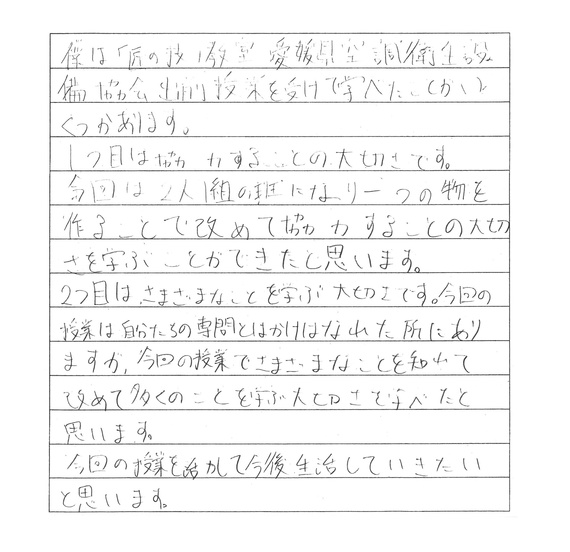 僕は「匠の技」教室 愛媛県空調衛生設
備協会出前授業を受けて学べたことがい
くつかあります。
1つ目は協力することの大切さです。
今回は2人1組の班になり一つの物を
作ることで改めて協力することの大切
さを学ぶことができたと思います。
2つ目はさまざまなことを学ぶ大切さです。今回の
授業は自分たちの専門とはかけはなれた所にあり
ますが、今回の授業でさまざまなことを知れて
改めて多くのことを学ぶ大切さを学べたと
思います。
今回の授業を活かして今後生活していきたい
と思います。